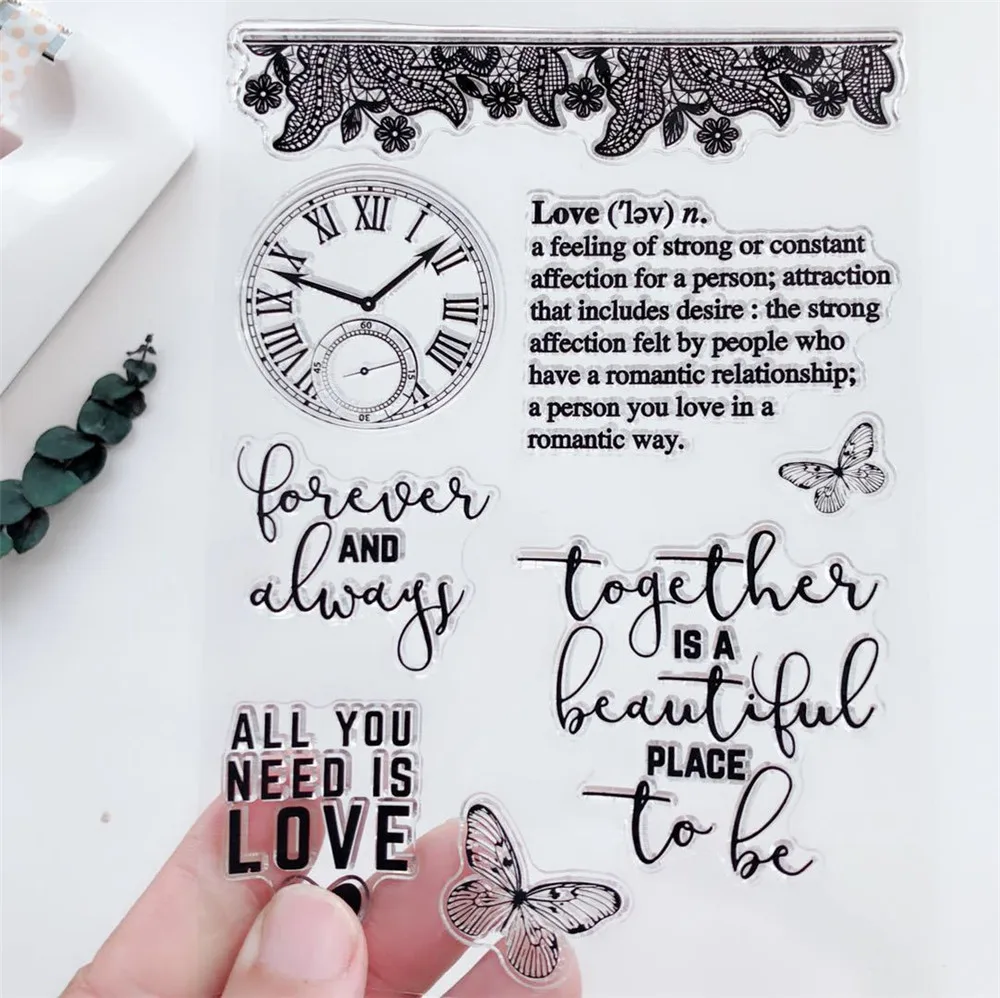 XII
I
II
III
IIII
VII
VIII
IX
X
XI
60
15
30
45
Love ('ləv) n.
a feeling of strong or constant
affection for a person; attraction
that includes desire : the strong
affection felt by people who
have a romantic relationship;
a person you love in a
romantic way.
forever
AND
always
together
IS A
beautiful
PLACE
to be
ALL YOU
NEED IS
LOVE